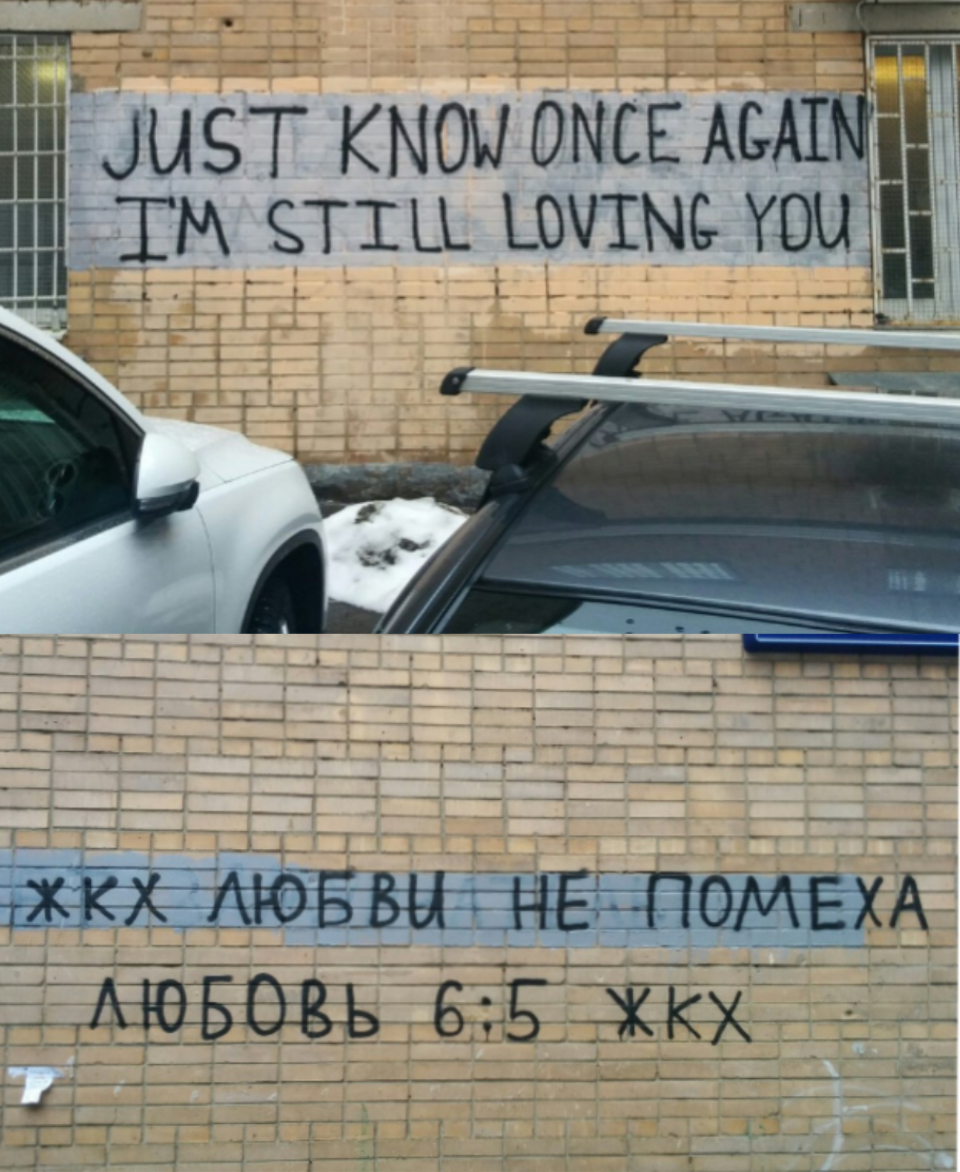 JUST KNOW ONCE AGAIN
I'M STILL LOVING YOU
ЖКХ ЛЮБВИ НЕ ПОМЕХА
ЛЮБОВЬ 6:5 ЖКХ